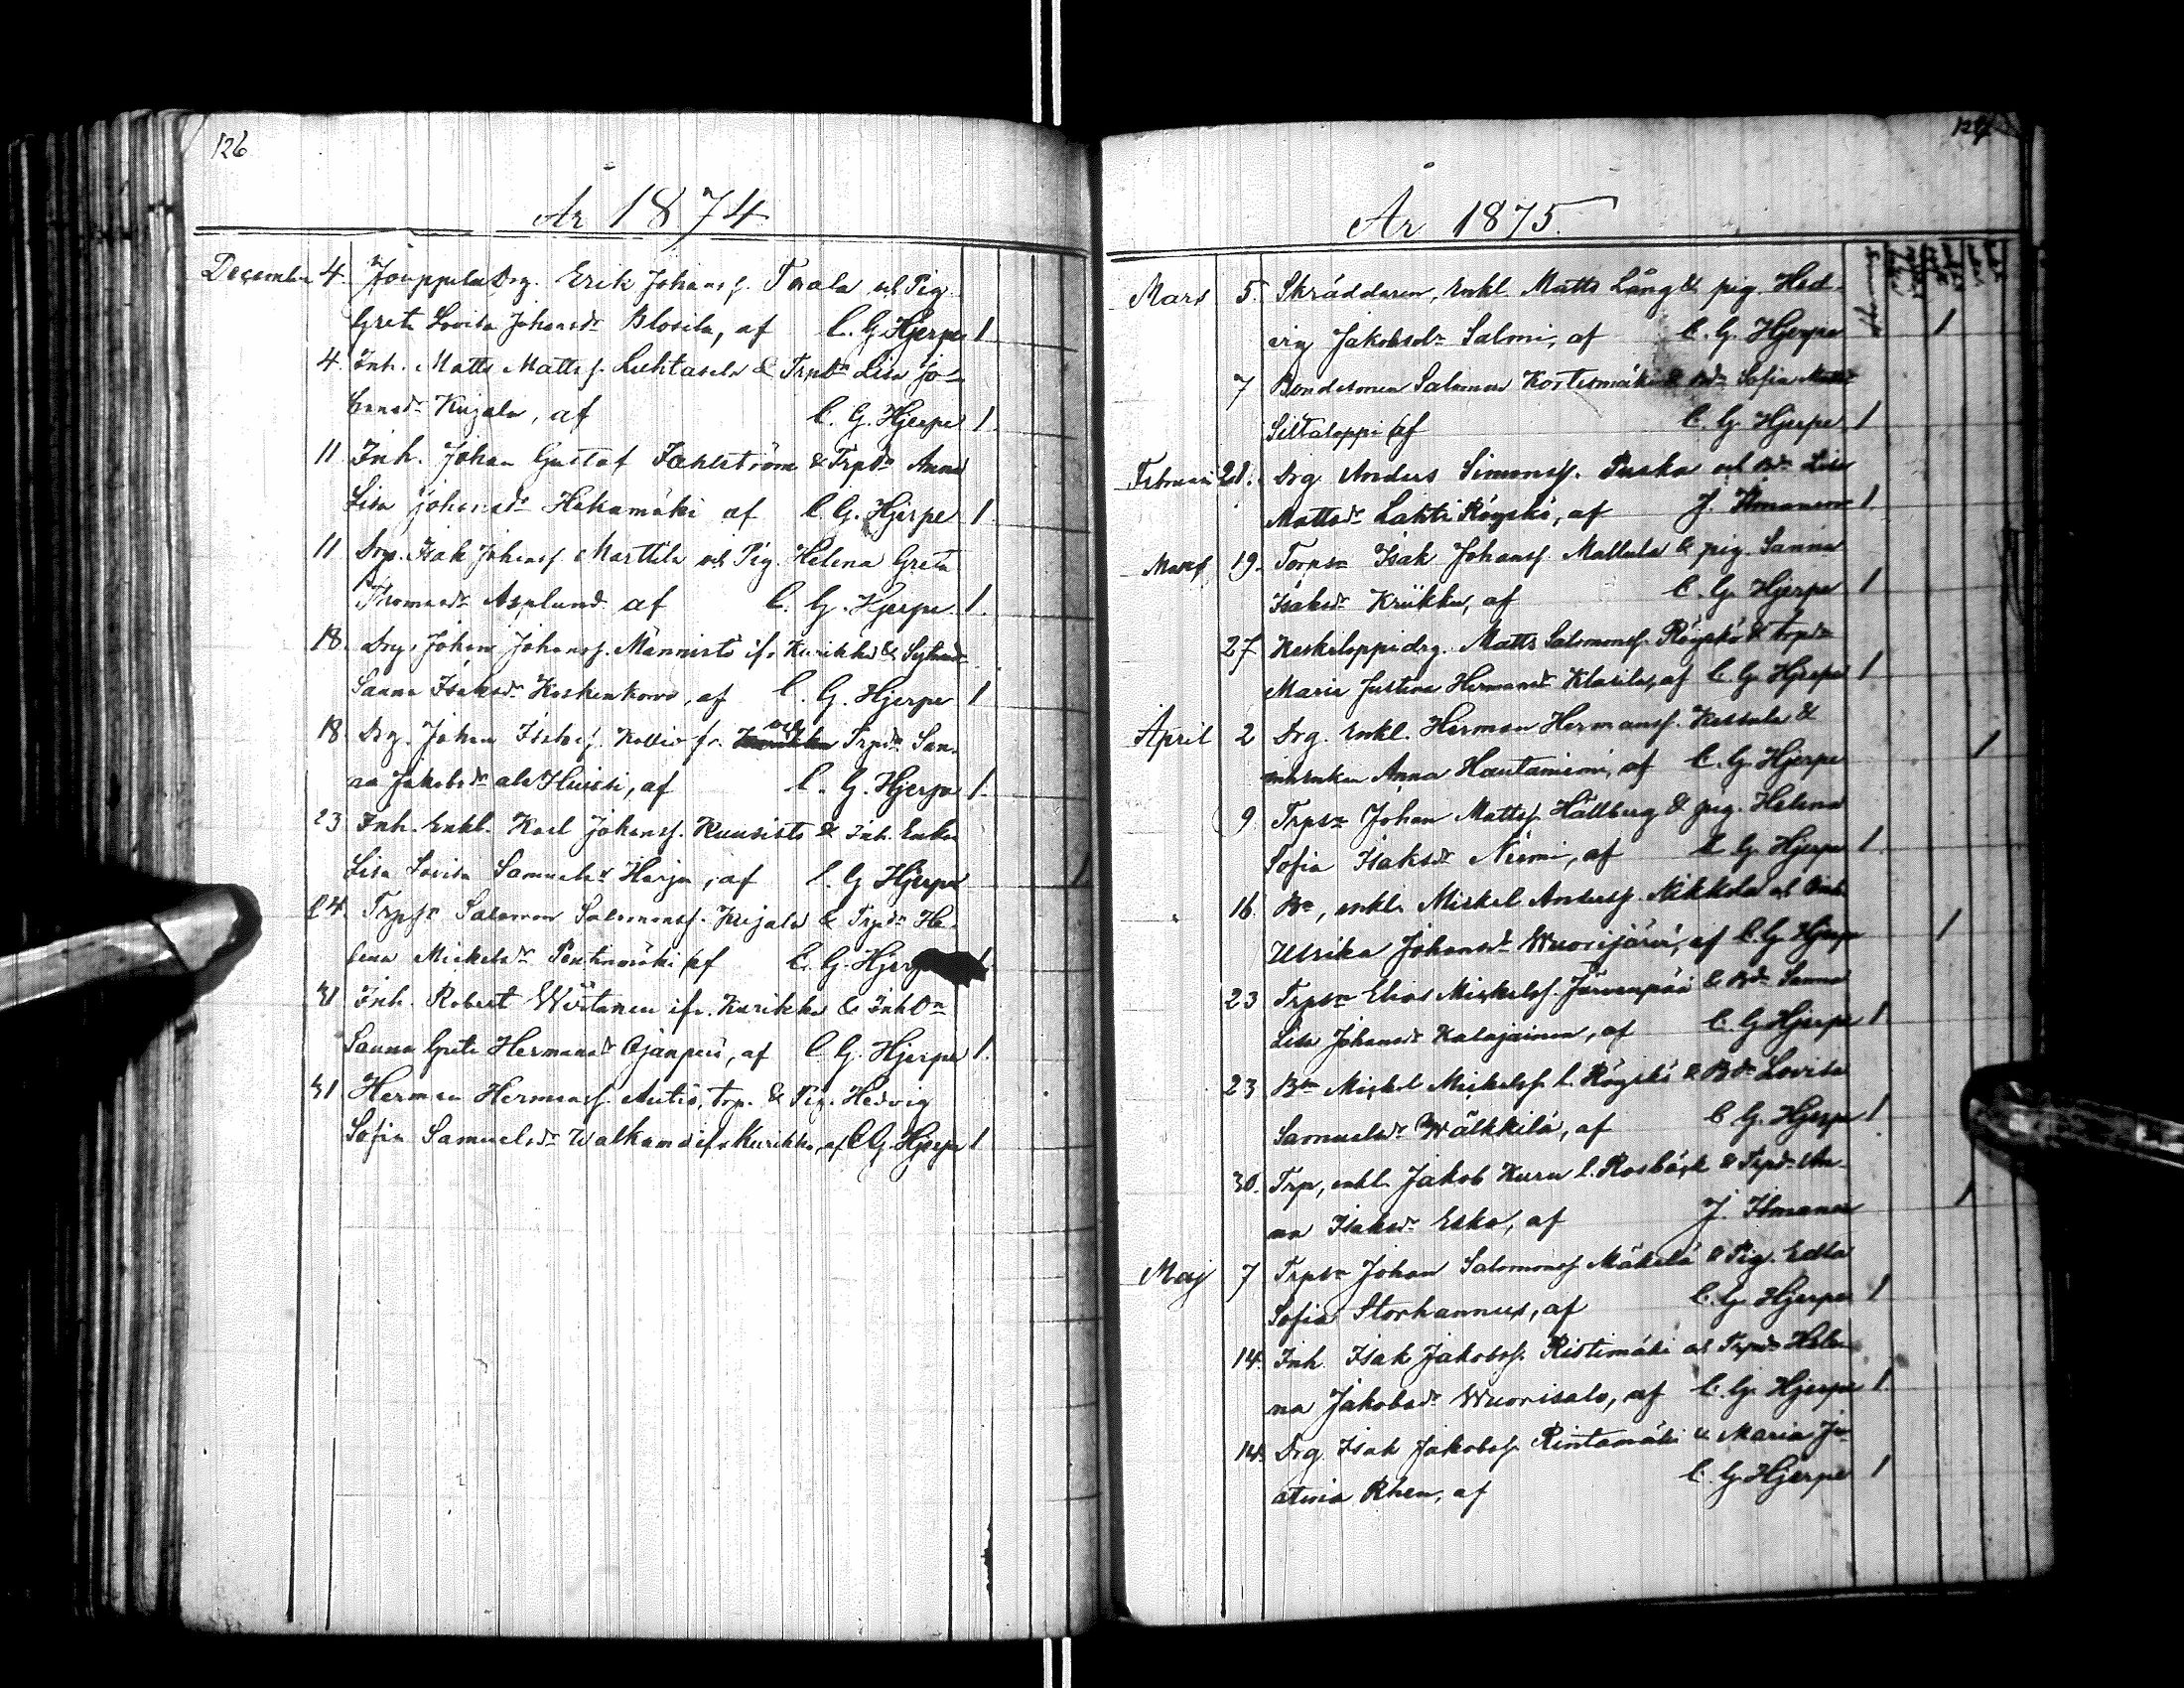 126
År 1874
December 4. Jouppila Drg. Erik Johanss. Torala och Pig.
Greta Lovisa Johansdr Blosila, af C. G. Hjerpe 1
4. Inh. Matts Mattss. Luhtasela & Trpdn Lisa Ja-
cobsdr Kujala, af C. G. Hjerpe 1.
11 Inh. Johan Gustaf Fahlström & Trpdn Anna
Lisa Johansdr Hakamäki af C. G. Hjerpe 1
11 Drg. Isak Johanss. Marttila och Pig. Helena Greta
Thomasdr Asplund af C. G. Hjerpe 1.
18. Drg. Johan Johanss. Männistö ifr. Kurikka &
Sanna Isaksdr Koskenkorva, af C. G. Hjerpe 1
18. Drg. Johan Kallio fr. och Trpdn San-
na Jakobsdr ala Huissi, af C. G. Hjerpe 1.
23 Inh. Enkl. Karl Johanss. Kuusisto & Inh. Enkan
Lisa Lovisa Samuelsdr Harja, af C. G. Hjerpe 1
24. Trpsn Salomon Salomonss. Kujala & Trpdn He-
lena Mickelsdr Pentinmäki af C. G. Hjerpe 1.
31 Inh. Robert Wirtanen ifr. Kurikka & InhDn
Sanna Greta Hermansdr Ojanperä, af C. G. Hjerpe 1.
31 Herman Hermanss. Autio, trp. & Pig. Hedvig
Sofia Samuelsdr Walkama ifr Kurikka, af C. G. Hjerpe 1
127
År 1875.
Mars 5. Skräddaren, Enkl. Matts Lång & pig. Hed-
vig Jakobsdr Salmi, af C. G. Hjerpe 1
7 Bondesonen Salomon Kortesmäki & Bdn Sofia
Siltaloppi af C. G. Hjerpe 1
Februari 21. Drg Anders Simonss. Puska och Bdn Lisa
Mattsdr Lahti Röyskö, af J. Ilmanen 1
Mars 19. Torpsn Isak Johanss. Mallula & pig. Sanna
Isaksdr Kriikku, af C. G. Hjerpe 1
27 Keskiloppi drg. Matts Salomonss. Röyskö & Trpdn
Maria Justina Hermansdr Klasila, af C. G. Hjerpe 1
April 2 Drg. Enkl. Herman Hermanss. Kassala &
inh enkan Anna Hautaniemi, af C. G. Hjerpe 1
9 Trpsn Johan Mattss. Hällberg & pig. Helena
Sofia Isaksdr Niemi, af C. G. Hjerpe 1
16. Bn, enkl. Mickel Anderss. Nikkola och
Ulrika Johansdr Wuorijärvi, af C. G. Hjerpe 1
23 Trpsn Elias Mickelss. Järvenpää & Bdn Sanna
Lisa Johansdr Kalajainen, af C. G. Hjerpe 1
23 Bn Mickel Mickelss. l. Röyskö & Bdn Lovisa
Samuelsdr Wälkkilä, af C. G. Hjerpe 1
30. Trp, enkl. Jakob Kuru l. Rosbäck & Trpdn An-
na Isaksdr Esko, af J. Ilmanen 1
Maj 7 Trpsn Johan Salomonss. Mäkelä & Pig. Edla
Sofia Storhannus, af C. G. Hjerpe 1
14. Inh. Isak Jakobss. Ristimäki och Trpdn Hele-
na Jakobsdr Wuorisalo, af C. G. Hjerpe 1
14. Drg Isak Jakobss. Rintamäki & Maria Ju-
stina Rhen, af C. G. Hjerpe 1